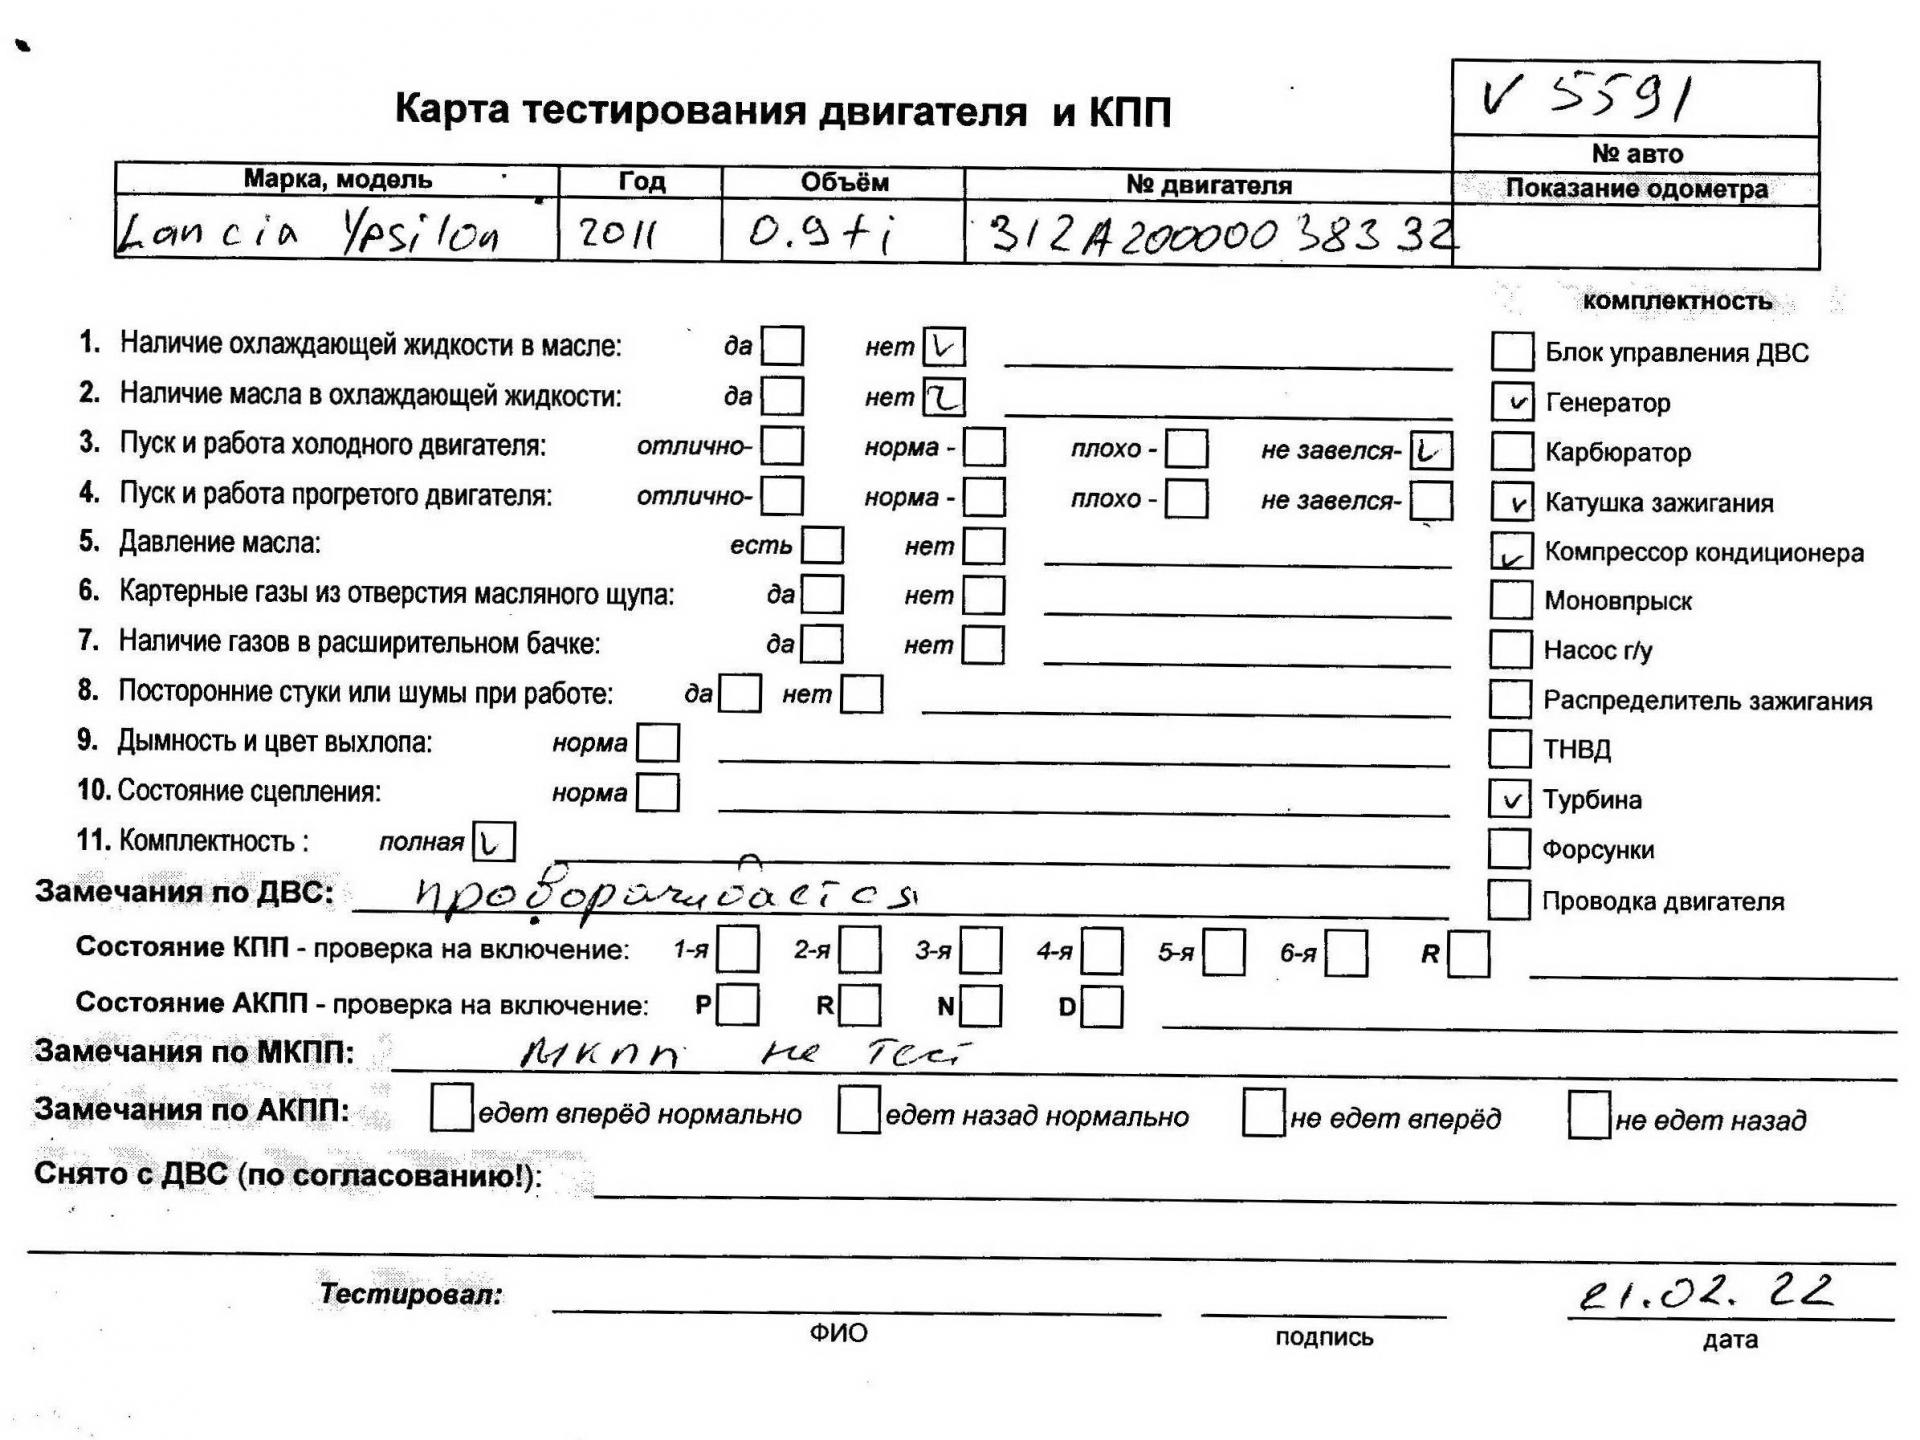 V 5591
Карта тестирования двигателя и КПП
№ авто
Марка, модель Год Объём № двигателя Показание одометра
Lancia Ypsilon 2011 0.9ti 312A20000038332
комплектность
1. Наличие охлаждающей жидкости в масле: да нет V Блок управления ДВС
2. Наличие масла в охлаждающей жидкости: да нет V Генератор
3. Пуск и работа холодного двигателя: отлично- норма - плохо - не завелся- V Карбюратор
4. Пуск и работа прогретого двигателя: отлично- норма - плохо - не завелся- V Катушка зажигания
5. Давление масла: есть нет V Компрессор кондиционера
6. Картерные газы из отверстия масляного щупа: да нет Моновпрыск
7. Наличие газов в расширительном бачке: да нет Насос г/у
8. Посторонние стуки или шумы при работе: да нет Распределитель зажигания
9. Дымность и цвет выхлопа: норма ТНВД
10. Состояние сцепления: норма V Турбина
11. Комплектность : полная V Форсунки
Замечания по ДВС: проворачивается Проводка двигателя
Состояние КПП - проверка на включение: 1-я 2-я 3-я 4-я 5-я 6-я R
Состояние АКПП - проверка на включение: P R N D
Замечания по МКПП: МКПП не тест
Замечания по АКПП: едет вперёд нормально едет назад нормально не едет вперёд не едет назад
Снято с ДВС (по согласованию!):
Тестировал: 21.02.22
ФИО подпись дата